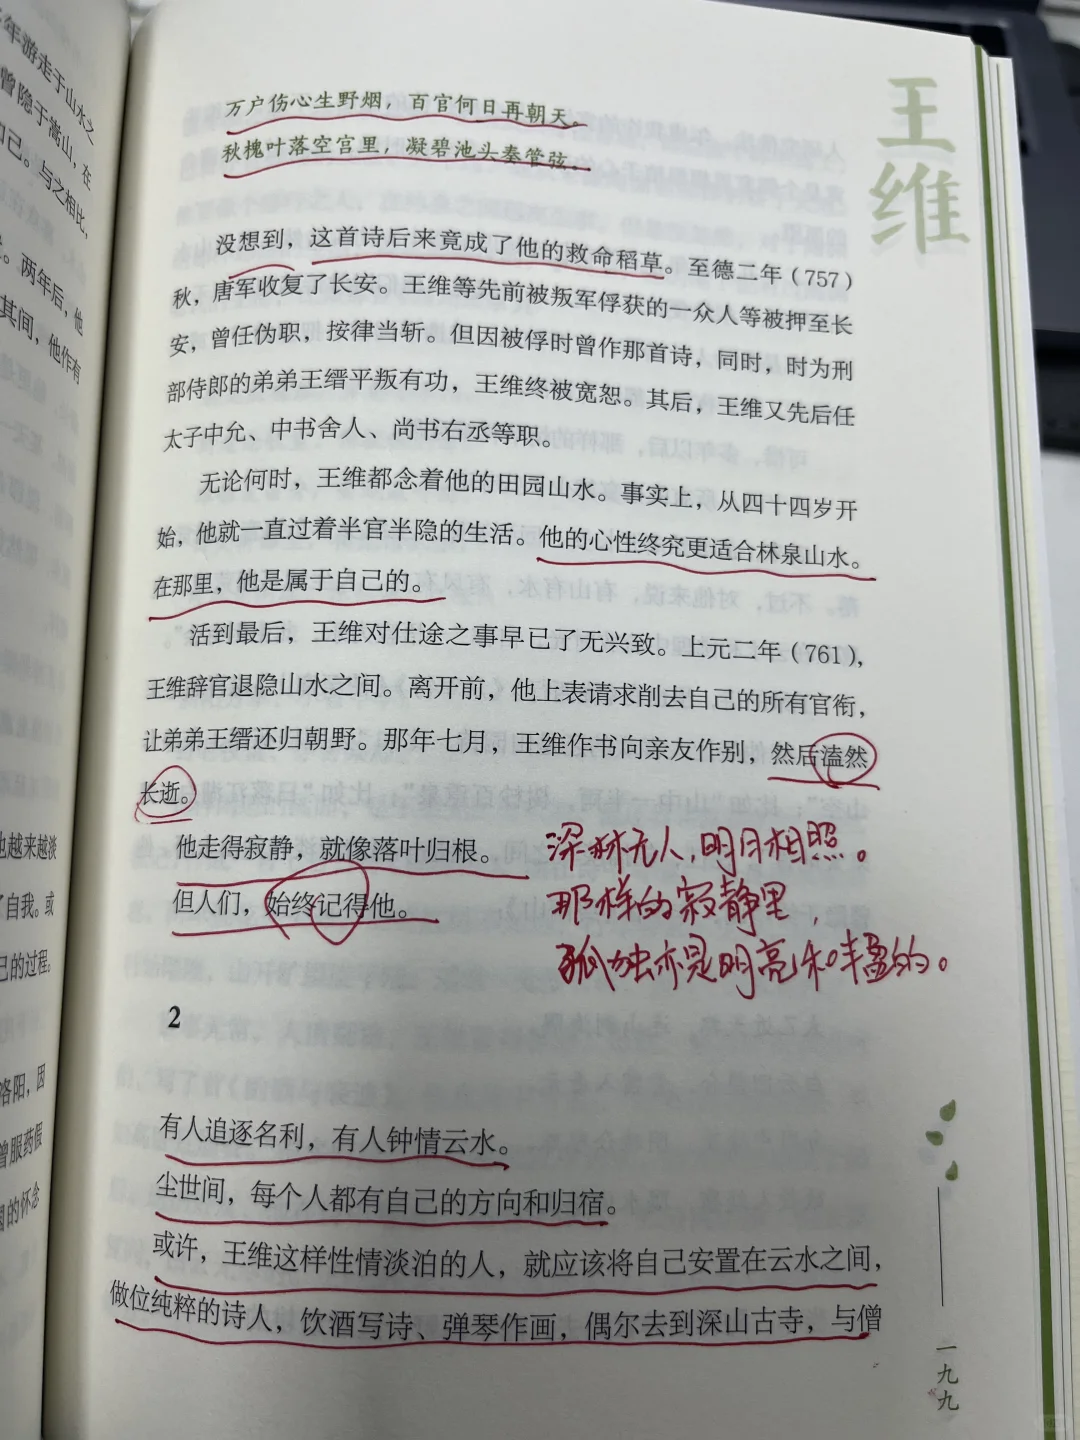 年游走于山水之
曾隐于嵩山，在
己。与之相比，
。两年后，他
其间，他作有
也越来越淡
了自我。或
己的过程。
洛阳，因
曾服药假
国的怀念
王维
万户伤心生野烟，百官何日再朝天。
秋槐叶落空宫里，凝碧池头奏管弦。
没想到，这首诗后来竟成了他的救命稻草。至德二年（757）
秋，唐军收复了长安。王维等先前被叛军俘获的一众人等被押至长
安，曾任伪职，按律当斩。但因被俘时曾作那首诗，同时，时为刑
部侍郎的弟弟王缙平叛有功，王维终被宽恕。其后，王维又先后任
太子中允、中书舍人、尚书右丞等职。
无论何时，王维都念着他的田园山水。事实上，从四十四岁开
始，他就一直过着半官半隐的生活。他的心性终究更适合林泉山水。
在那里，他是属于自己的。
活到最后，王维对仕途之事早已了无兴致。上元二年（761），
王维辞官退隐山水之间。离开前，他上表请求削去自己的所有官衔，
让弟弟王缙还归朝野。那年七月，王维作书向亲友作别，然后溘然
长逝。
他走得寂静，就像落叶归根。
但人们，始终记得他。
深林无人，明月相照。
那样的寂静里，
孤独亦是明亮和丰盈的。
2
有人追逐名利，有人钟情云水。
尘世间，每个人都有自己的方向和归宿。
或许，王维这样性情淡泊的人，就应该将自己安置在云水之间，
做位纯粹的诗人，饮酒写诗、弹琴作画，偶尔去到深山古寺，与僧
一九九